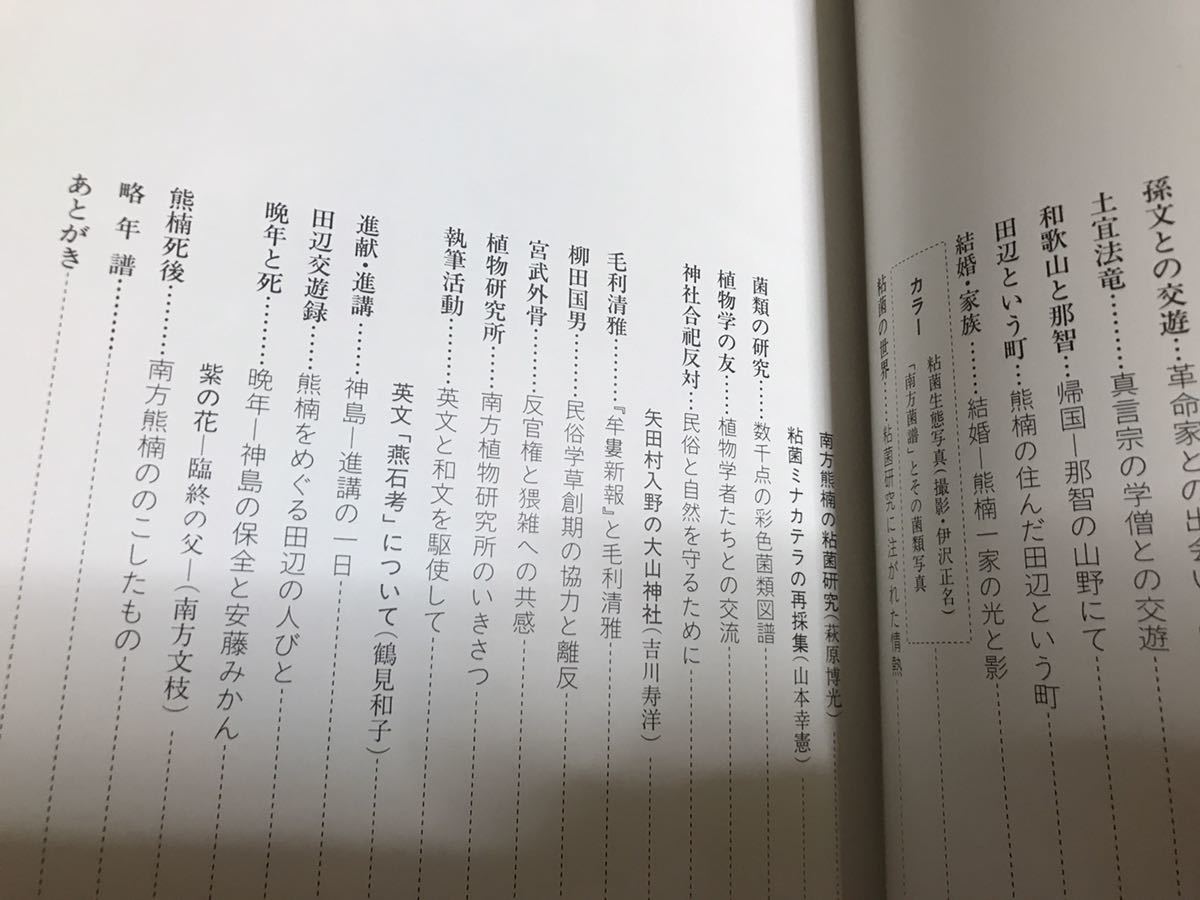 孫文との交遊…革命家との出会い
土宜法竜………真言宗の学僧との交遊
和歌山と那智…帰国―那智の山野にて
田辺という町…熊楠の住んだ田辺という町
結婚・家族……結婚―熊楠一家の光と影
カラー 粘菌生態写真(撮影・伊沢正名)
「南方菌譜」とその菌類写真
粘菌の世界……粘菌研究に注がれた情熱
南方熊楠の粘菌研究(萩原博光)
粘菌ミナカテラの再採集(山本幸憲)
菌類の研究……数千点の彩色菌類図譜
植物学の友……植物学者たちとの交流
神社合祀反対…民俗と自然を守るために
矢田村入野の大山神社(吉川寿洋)
毛利清雅………『牟婁新報』と毛利清雅
柳田国男………民俗学草創期の協力と離反
宮武外骨………反官権と猥雑への共感
植物研究所……南方植物研究所のいきさつ
執筆活動………英文と和文を駆使して
英文「燕石考」について(鶴見和子)
進献・進講……神島―進講の一日
田辺交遊録……熊楠をめぐる田辺の人びと
晩年と死………晩年―神島の保全と安藤みかん
紫の花―臨終の父―(南方文枝)
熊楠死後………南方熊楠ののこしたもの
略年譜
あとがき